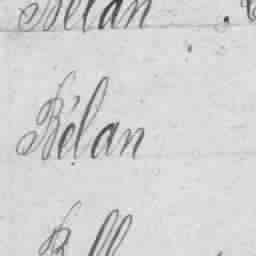 Bélan
Bélan